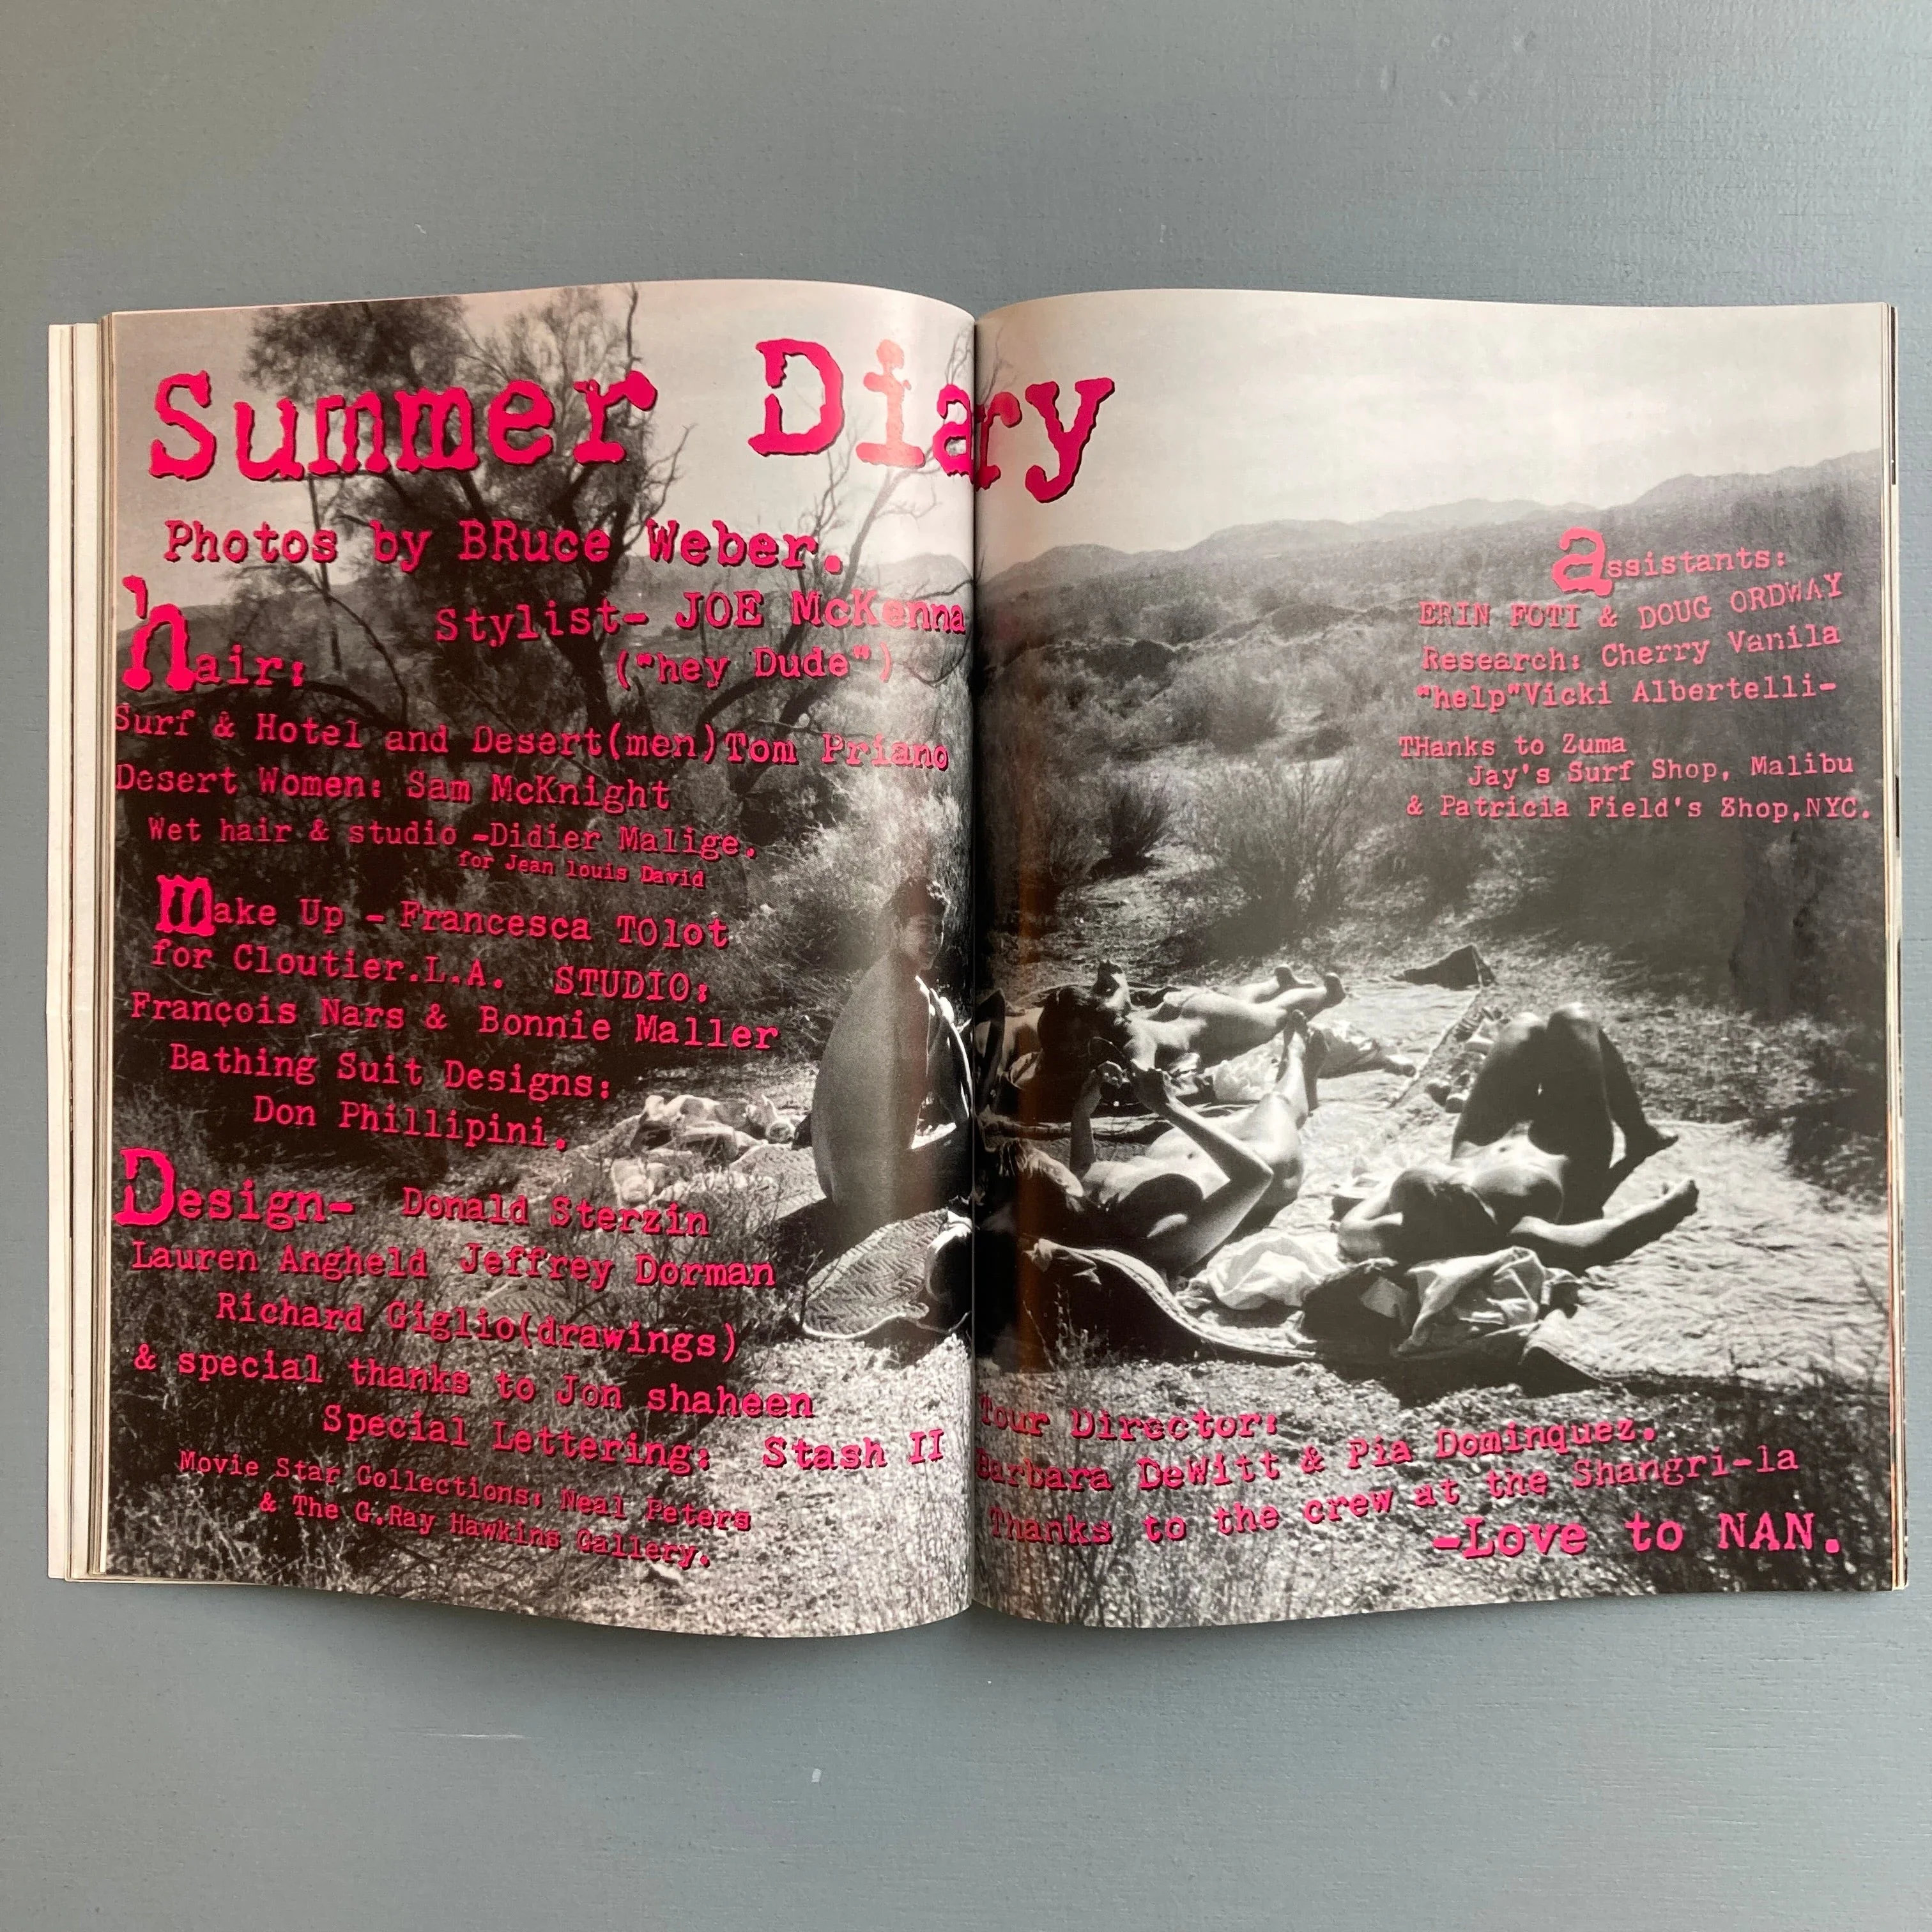 Summer Diary
Photos by BRuce Weber.
Stylist- JOE McKenna
("hey Dude")
hair:
Surf & Hotel and Desert(men)Tom Priano
Desert Women: Sam McKnight
Wet hair & studio -Didier Malige.
for Jean louis David
make Up - Francesca TOlot
for Cloutier.L.A. STUDIO:
François Nars & Bonnie Maller
Bathing Suit Designs:
Don Phillipini.
Design- Donald Sterzin
Lauren Angheld Jeffrey Dorman
Richard Giglio(drawings)
& special thanks to Jon shaheen
Special Lettering: Stash II
Movie Star Collections: Neal Peters
& The G.Ray Hawkins Gallery.
assistants:
ERIN FOTI & DOUG ORDWAY
Research: Cherry Vanila
"help"Vicki Albertelli-
THanks to Zuma
Jay's Surf Shop, Malibu
& Patricia Field's Shop,NYC.
Tour Director:
Barbara DeWitt & Pia Dominquez.
Thanks to the crew at the Shangri-la
-Love to NAN.